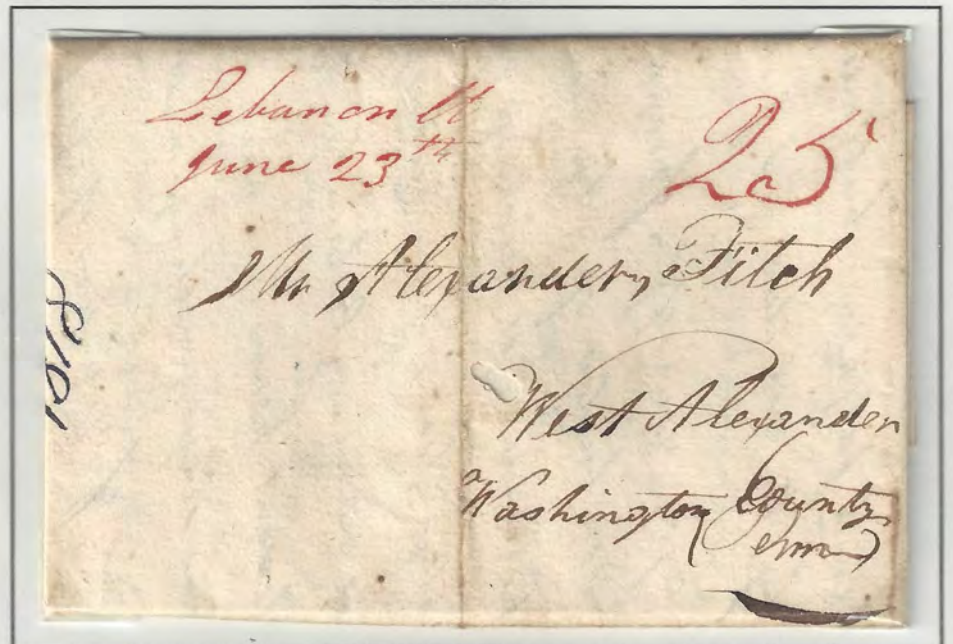 Lebanon Ct
June 23th
25
Mr Alexander, Fitch
West Alexander
Washington County
1818